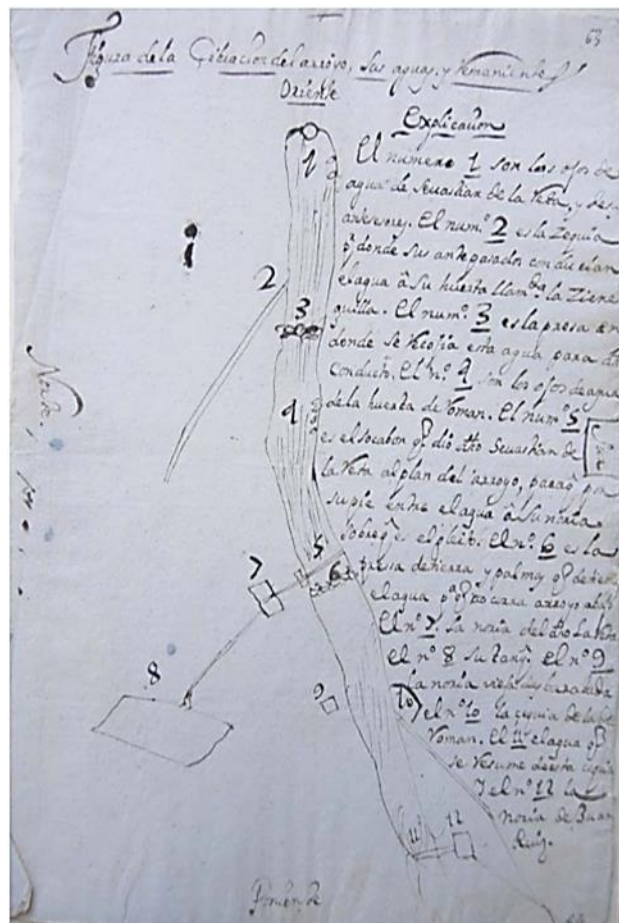 63
Figura de la Cituacion del arroyo, sus aguas, y remaniente
Oriente
Explicacion
El numero 1 son los ojos de
agua de Sevastian de la Veta, y de sus
antesesores. El num.º 2 es la Zequia
p.r donde sus antepasados conducian
el agua â su huerta llam.da la Ziene
guilla. El num.º 3 es la presa en
donde se recojia esta agua para dho
conducto. El nº. 4 son los ojos de agua
de la huerta de Roman. El num.º 5
es el socabon q.e dio dho Sevastian de
la Veta al plan del arroyo, para q.e por
su pie entre el agua â su noria
sobre q.e es el pleito. El nº. 6 es la
presa de tierra y palma q.e detiene
el agua p.a q.e no corra arroyo abajo
El nº 7. la noria del dho la Veta
el nº 8 su tanq.e el nº 9
la noria vieja
y el nº 10 la sequia de la
Roman. El 11 el agua q.e
se resume de esta sequia
y el nº 12 la
noria de Juan
Ruiz.
1
2
3
4
5
6
7
8
9
10
11
12
Norte.
Sur
Poniente